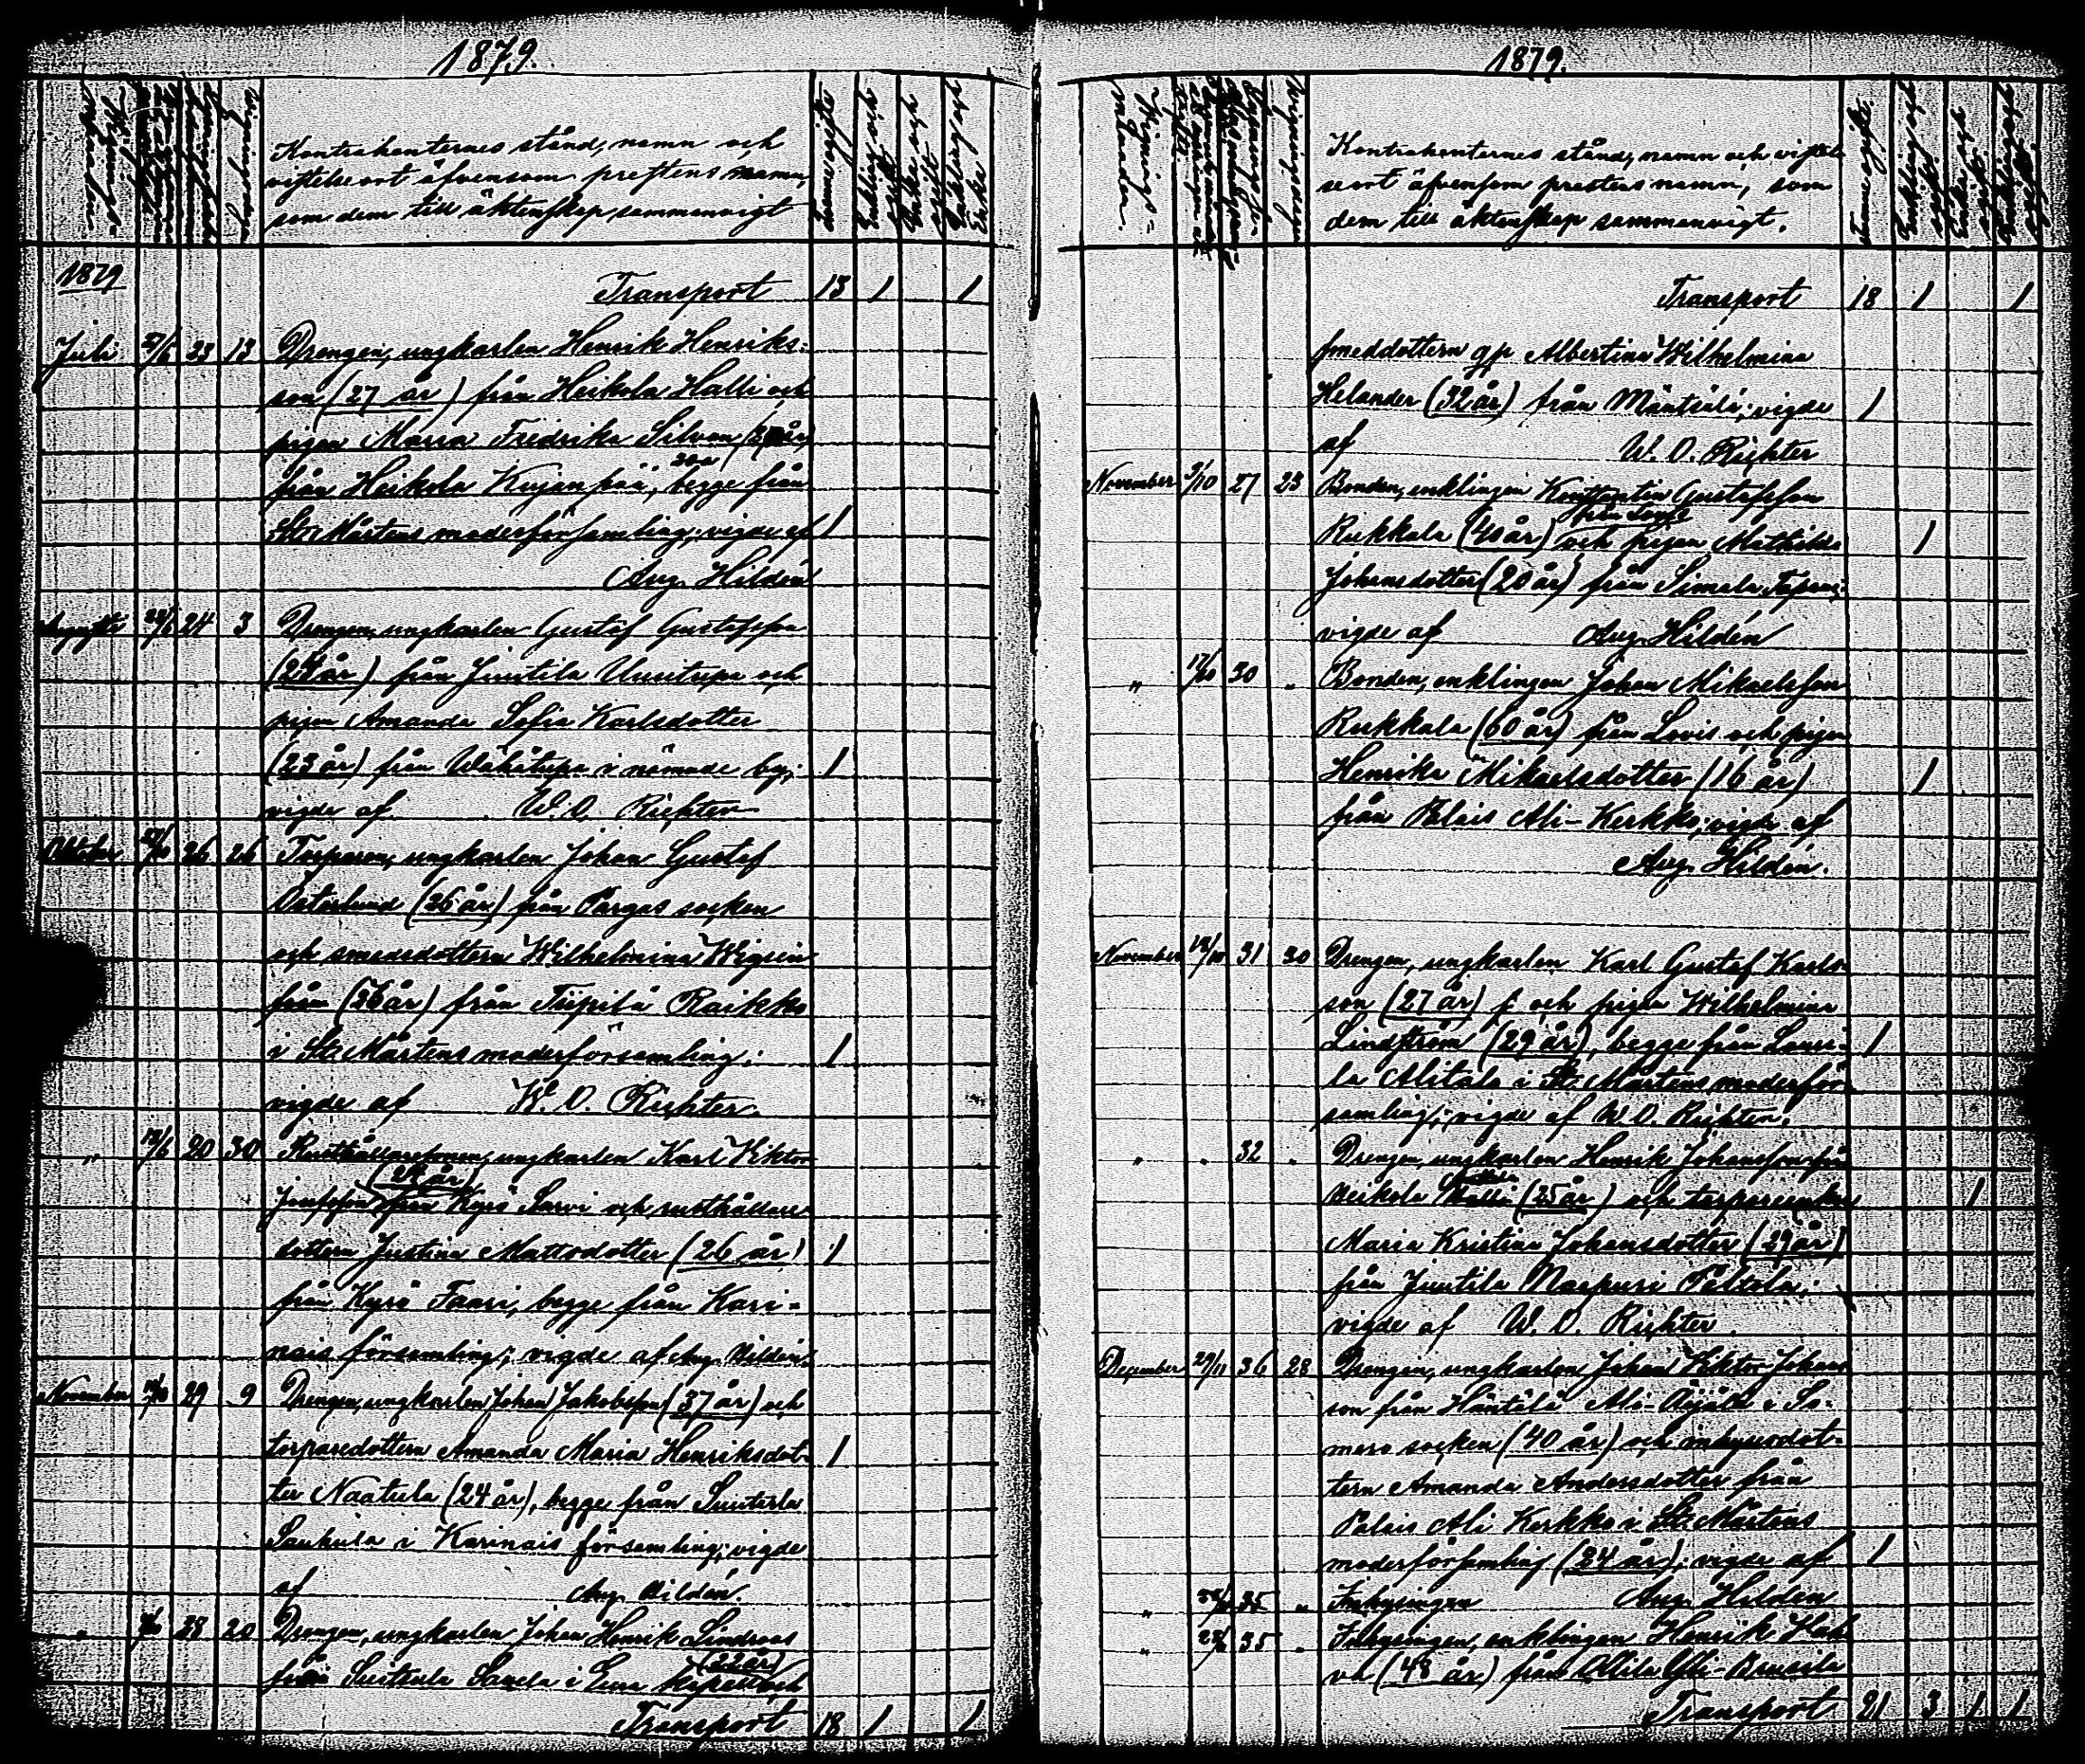 1879.
Kontrahenternes stånd, namn och
vistelseort äfvensom prestens namn,
som dem till äktenskap sammanvigt
1879
Transport 13 1 1
Juli 23 13 Drengen, ungkarlen Henrik Henriks-
son (27 år) från Heikola Halli och
pigan Maria Fredrika Silvan
från Heikola Kujanpää, begge från
St. Mårtens moderförsamling; vigde af 1
Aug. Hildén
24 3 Drengen, ungkarlen Gustaf Gustafsson
från Juutila Uusitupa och
pigan Amanda Sofia Karlsdotter
(23 år) från Wähätupa i nämnde by; 1
vigde af W. O. Richter
Oktober 26 26 Torparen, ungkarlen Johan Gustaf
Österlund (26 år) från Pargas socken
och smedsdottern Wilhelmina
från (26 år) från Tiipilä Raikko
i St. Mårtens moderförsamling; 1
vigde af W. O. Richter.
„ 20 30 Rusthållaresonen, ungkarlen Karl Viktor
(24 år)
Josefsson från Kyrö Sarvi och rusthållare
dottern Justina Mattsdotter (26 år) 1
från Kyrö Faari, begge från Kari-
nais församling; vigde af Aug. Hildén.
November 29 9 Drengen, ungkarlen Johan Jakobsson (37 år) och
torparedottern Amanda Maria Henriksdot- 1
ter Naatula (24 år), begge från Suuterla
Saukula i Karinais församling; vigde
af Aug. Hildén.
„ 28 20 Drengen, ungkarlen Johan Henrik Lindroos
(22 år)
från i Eura kapell och
Transport 18 1 1
1879.
Kontrahenternes stånd, namn och vistel-
seort äfvensom prestens namn, som
dem till äktenskap sammanvigt.
Transport 18 1 1
smeddottern Albertina Wilhelmina
Helander (32 år) från Mäntsälä; vigde 1
af W. O. Richter
November 27 23 Bonden, enklingen Konstantin Gustafsson
Rekkala (40 år) och pigan Mathilda 1
Johansdotter (20 år) från Simala
vigde af Aug. Hildén
„ 30 „ Bonden, enklingen Johan Mikaelsson
Rekkala (60 år) från Lovis och pigan
Henrika Mikaelsdotter (16 år) 1
från Palais Ali-Kerkko; vigde af
Aug. Hildén.
November 31 30 Drengen, ungkarlen Karl Gustaf Karls-
son (27 år) och pigan Wilhelmina
Lindström (29 år), begge från Lauri- 1
la Alitalo i St. Mårtens moderför-
samling; vigde af W. O. Richter.
„ „ 32 „ Drengen, ungkarlen Henrik Johansson från
Heikola (25 år) och torpareenkan 1
Maria Kristina Johansdotter (29 år)
från Juutila Maspuri Peltola;
vigde af W. O. Richter.
December 29/11 36 28 Drengen, ungkarlen Johan Viktor Johans-
son från Häntälä Ali-Äijälä i So-
mero socken (40 år) och inhysesdot-
tern Amanda Andersdotter från
Palais Ali Kerkko i St. Mårtens
moderförsamling (24 år); vigde af 1
„ 35 „ Inhysingen Aug. Hildén
„ 35 „ Inhysingen, enklingen Henrik
(48 år) från Ollila
Transport 21 3 1 1